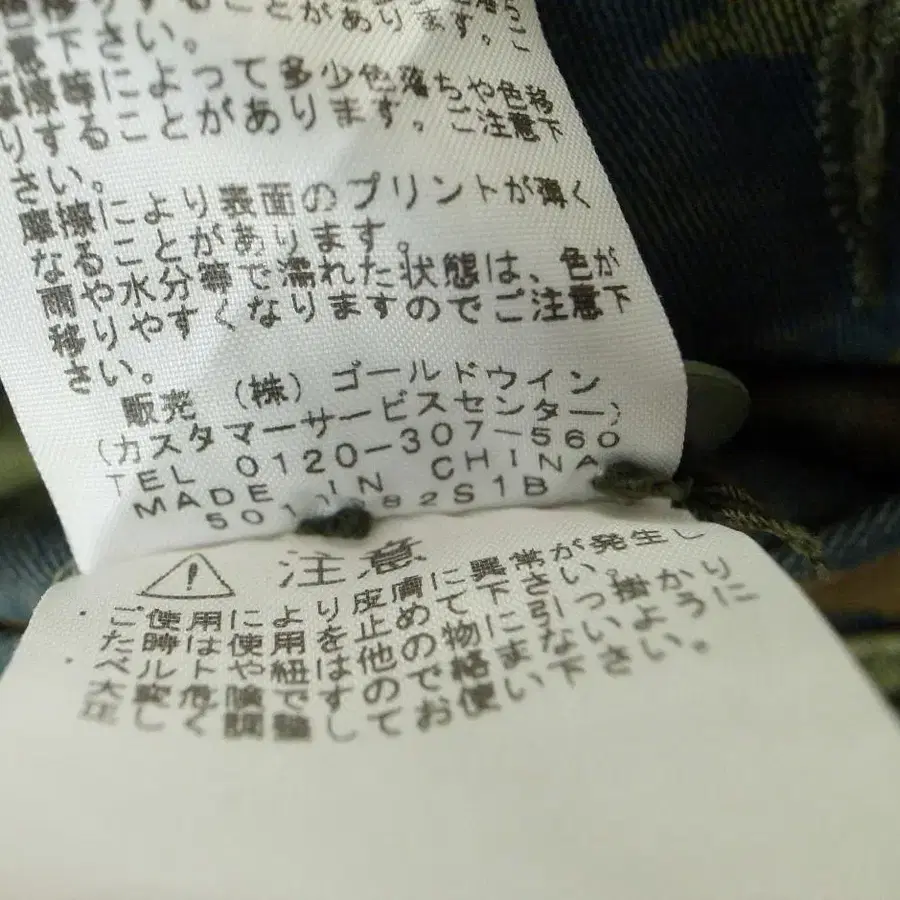 することがあります。
ご注意下さい。
摩擦等によって多少色落ちや色移
りすることがあります。ご注意下
さい。
摩擦により表面のプリントが薄く
なることがあります。
雨や水分等で濡れた状態は、色が
移りやすくなりますのでご注意下
さい。
販売 (株) ゴールドウイン
(カスタマーサービスセンター)
TEL 0120-307-560
MADE IN CHINA
82S1B
注意
ご使用により皮膚に異常が発生し
た時は使用を止めて下さい。
ベルトや紐は他の物に引っ掛かり
大変危険ですので絡まないように
正しく調整してお使い下さい。